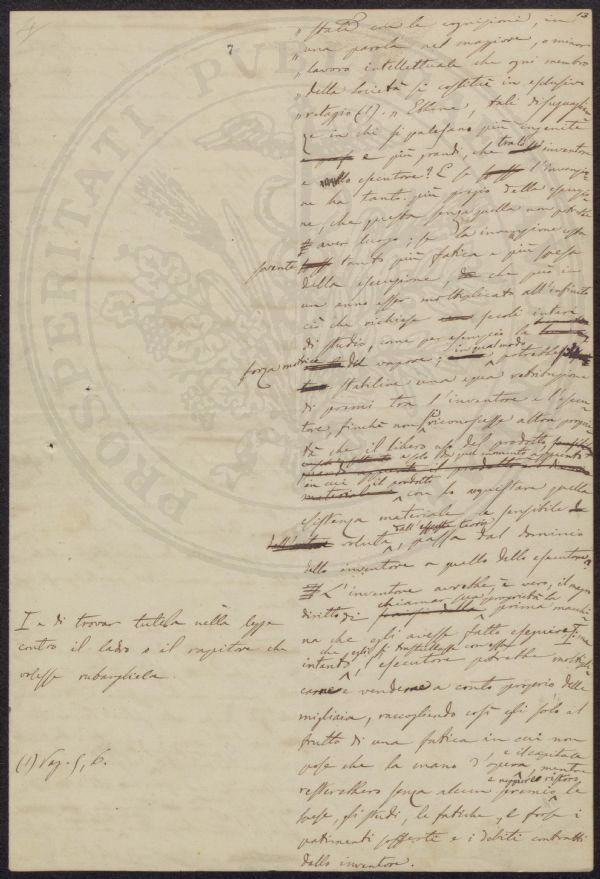 13
7
„ state con le cognizioni, in
„ una parola nel maggiore, o minor
„ lavoro intellettuale che ogni membro
„ della società si costituì in esclusivo
„ retaggio (1). „ Ebbene, tali disuguaglian
ze in chi si palesano più ingenite
e più grandi, che tra lo inventore
e lo esecutore? E se l'invenzio
ne ha tanto più pregio della esecuzio
ne, che questa senza quella non potrebbe
aver luogo; se la invenzione costa
sovente tanto più fatica e più spesa
della esecuzione, che può in
un anno esser moltiplicata all'infinito
ciò che richiese secoli interi
di studio, come per esempio la
forza motrice del vapore; in qual modo potrebbe
stabilire una equa retribuzione
di premi tra l'inventore e l'esecu
tore, finchè non si riconoscesse altra proprie
tà che il libero uso del prodotto
e solo da quel momento appunto
in cui il prodotto
con lo acquistare quella
esistenza materiale e sensibile
voluta dall' teoria, passa dal dominio
dello inventore a quello dello esecutore?
L'inventore avrebbe, è vero, il magro
diritto di chiamar sua proprietà la prima macchi
na che egli avesse fatto eseguire I; ma
intanto che egli si trastullasse con essa, l'esecutore potrebbe moltipli
care e vendere a conto proprio delle
migliaia, raccogliendo così egli solo il
frutto di una fatica in cui non
pose che la mano d'opera, e il capitale mentre
resterebbero senza alcun premio e neppure ristoro le
spese, gli studi, le fatiche, e forse i
patimenti sofferti e i debiti contratti
dallo inventore.
I e di trovar tutela nella legge
contro il ladro o il rapitore che
volesse rubargliela.
(1) Pag. 5, 6.
PROSPERITATI PUBL